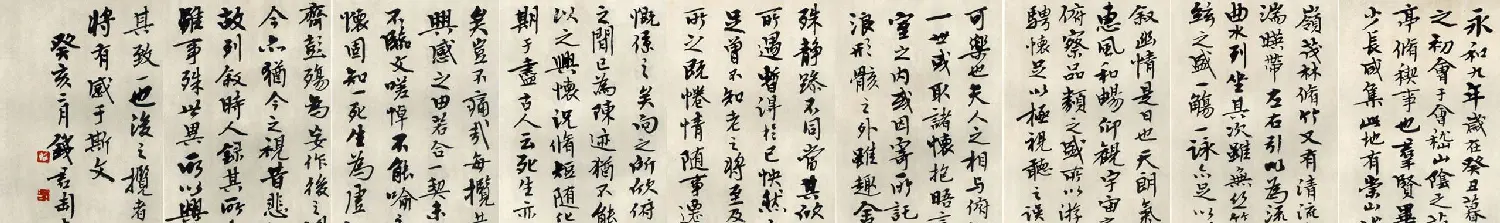 永和九年歲在癸丑暮
之初會于會稽山陰之
亭脩禊事也羣賢畢
少長咸集此地有崇山
嶺茂林脩竹又有清流
湍暎帶左右引以為流
曲水列坐其次雖無絲竹
絃之盛一觴一詠亦足以
叙幽情是日也天朗氣
惠風和暢仰觀宇宙之
俯察品類之盛所以游
騁懷足以極視聽之娛
可樂也夫人之相與俯
一世或取諸懷抱晤言
室之內或因寄所託
浪形骸之外雖趣舍
殊靜躁不同當其欣
所遇暫得於己怏然
足曾不知老之將至及
所之既惓情随事遷
慨係之矣向之所欣俯
之間已為陳迹猶不能
以之興懷況脩短随化
期于盡古人云死生亦
矣豈不痛哉每攬昔
興感之由若合一契未
不臨文嗟悼不能喻之
懷固知一死生為虛
齊彭殤為妄作後之
今亦猶今之視昔悲
故列叙時人録其所
雖事殊世異所以興
其致一也後之攬者
將有感于斯文
癸亥二月 錢君匋